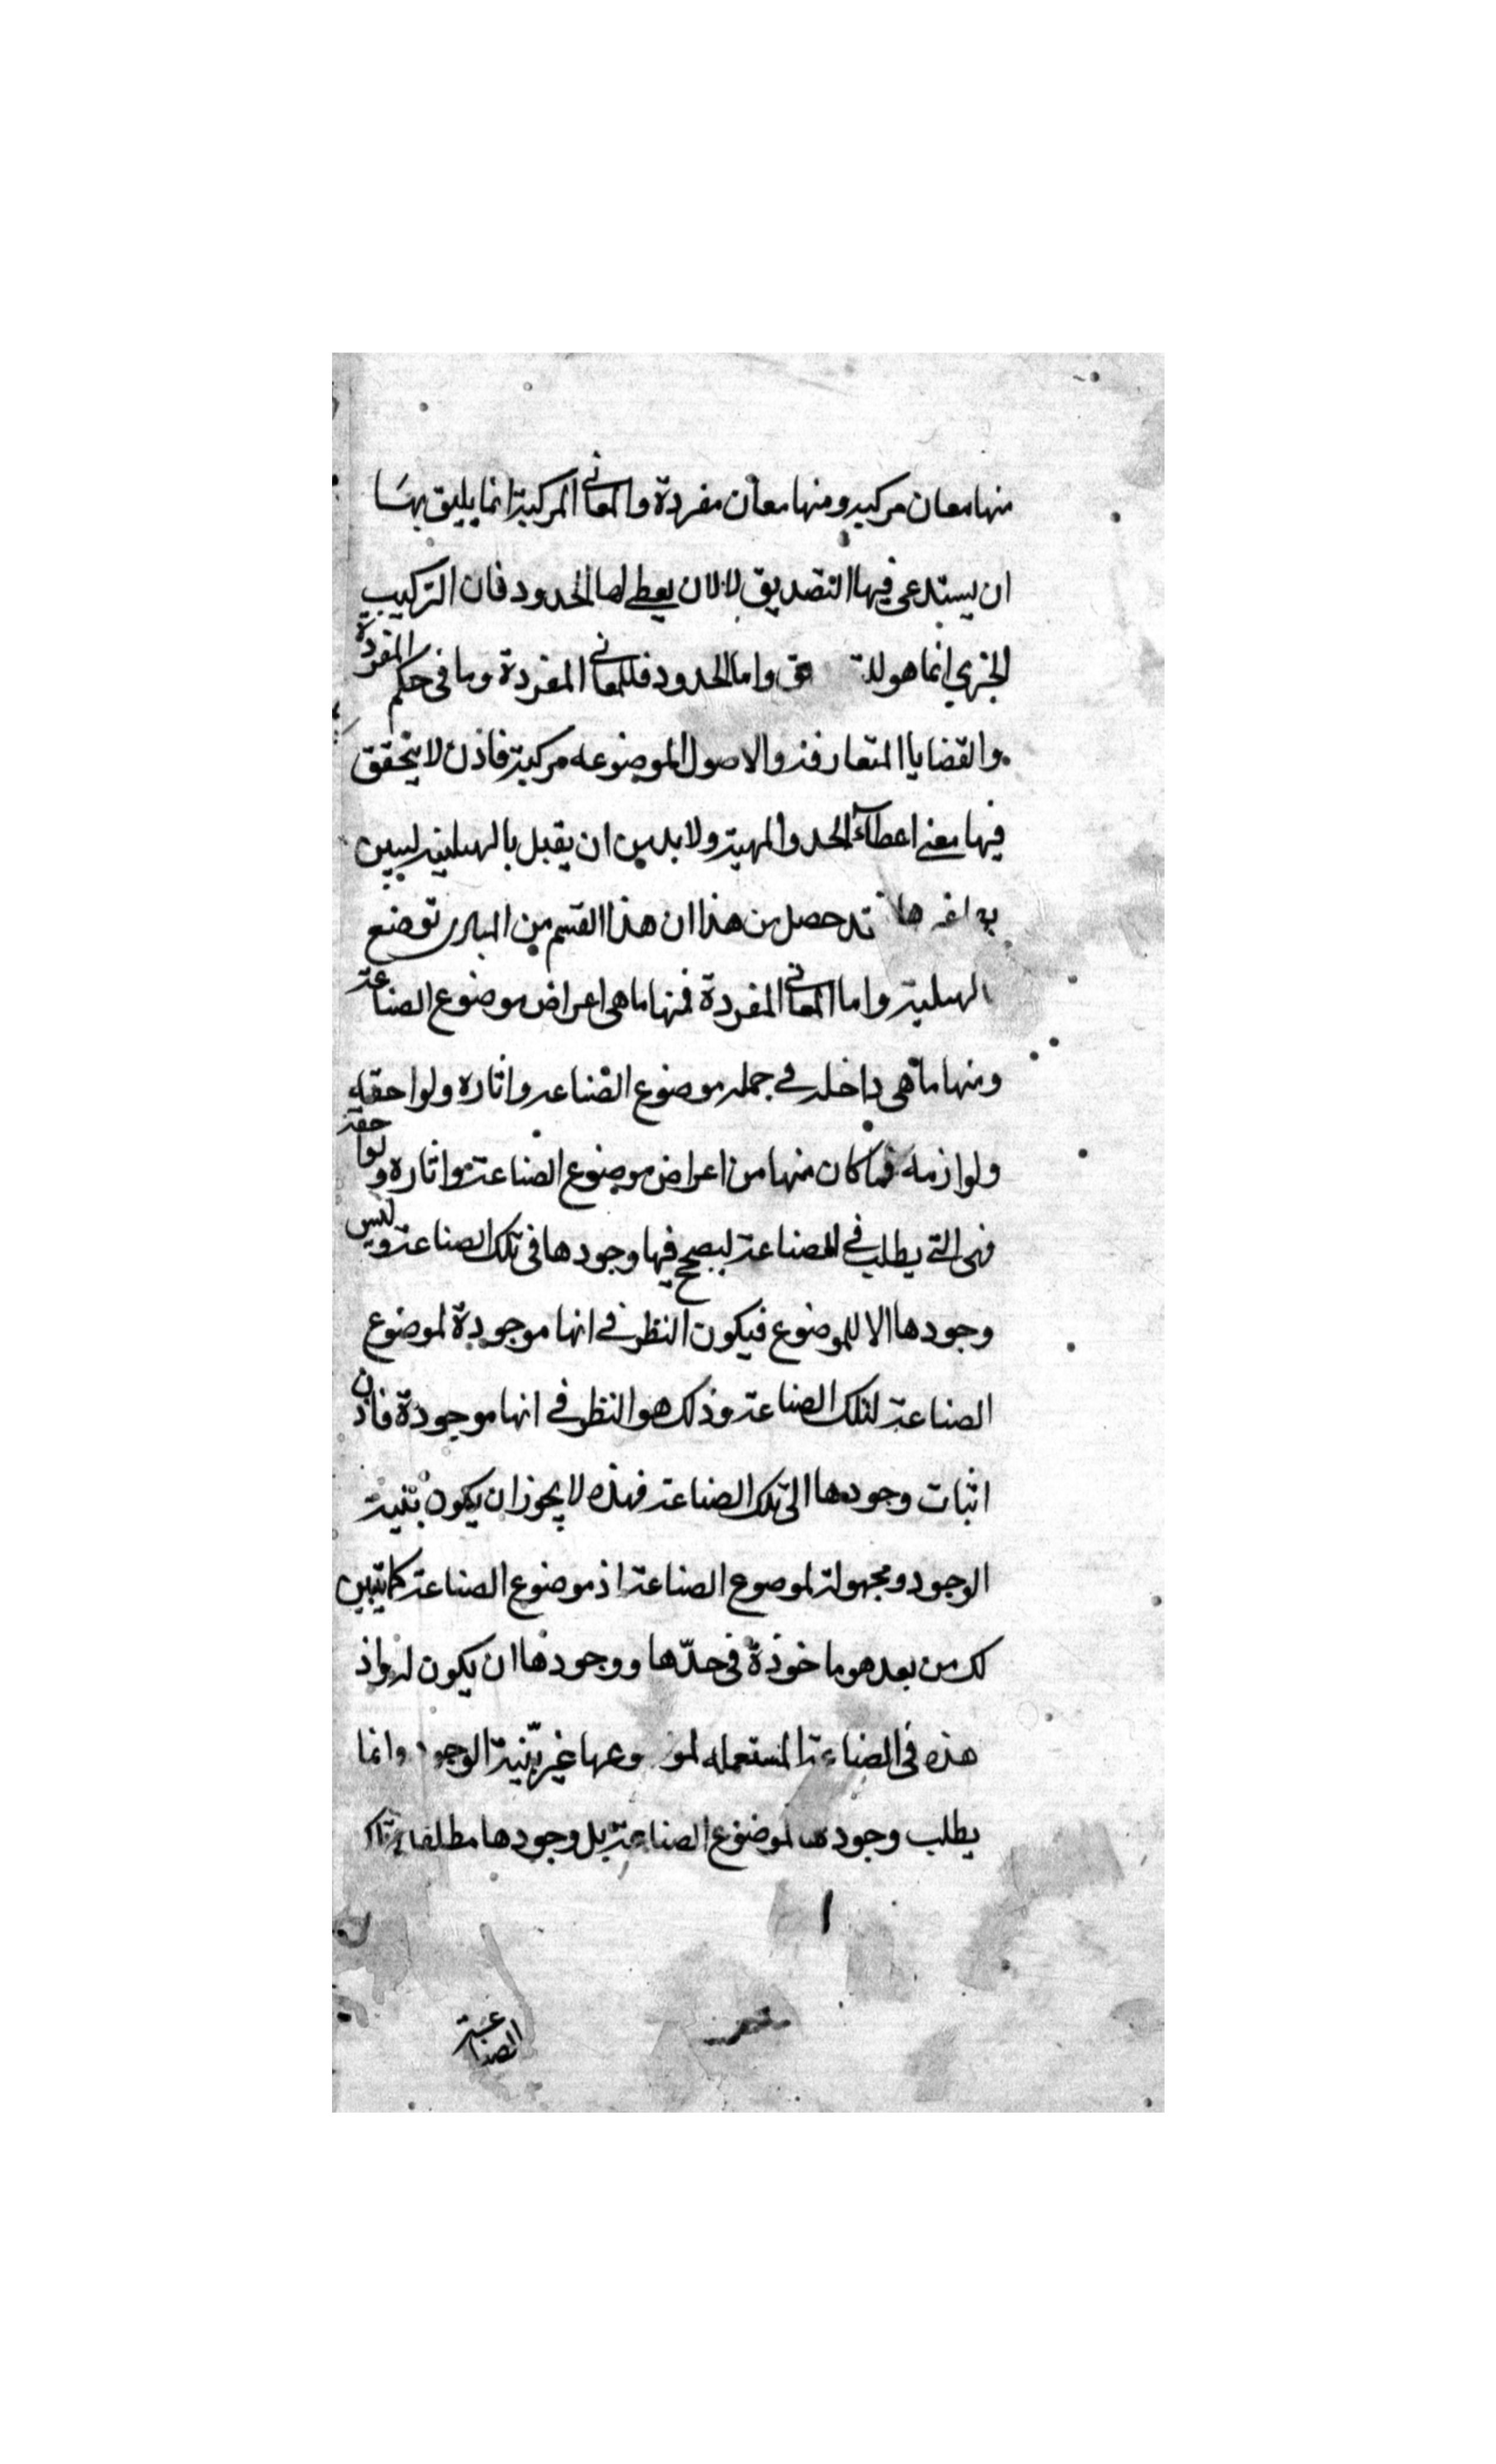 منها معان مركبه ومنها معان مفردة والمعانى المركبة انما يليق بها
ان يستدعى فيها التصديق لا لان يعطى لها الحدود فان التركيب
الخبرى انما هو واما الحدود فللمعانى المفردة وما فى حكم المفردة
والقضايا المتعارفة والاصول الموضوعه مركبة فاذن لا يتحقق
فيها معنى اعطاء الحد والمهية ولا بد من ان يقبل بالهلية ليبين
حصل من هذا ان هذا القسم من المبادى توضع
الهلية واما المعانى المفردة فمنها ما هى اعراض موضوع الصناعة
ومنها ما هى داخله فى جملة موضوع الصناعة واثاره ولواحقه
ولوازمه فما كان منها من اعراض موضوع الصناعة واثاره ولواحقه
فهى التى يطلب فى الصناعة ليصحح فيها وجودها فى تلك الصناعة وليس
وجودها الا للموضوع فيكون النظر فى انها موجودة لموضوع
الصناعة لتلك الصناعة وذلك هو النظر فى انها موجودة فاذن
اثبات وجودها الى تلك الصناعة فهذه لا يجوز ان يكون بينة
الوجود ومجهولة لموضوع الصناعة اذ موضوع الصناعة كما يتبين
لك من بعد هو ماخوذة فى حدّها ووجودها ان يكون له واذ
هذه فى الصناعة المستعمله غير بيّنة الوجود وانما
يطلب وجودها لموضوع الصناعة بل وجودها مطلقا
الصناعة